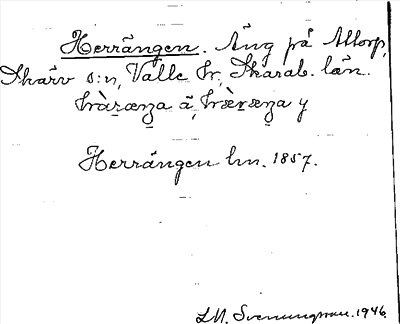 Herrängen. Äng på Altorp,
Skärv s:n, Valle hr, Skarab. län.
Herrängen lm. 1857.
L.M. Svenungsson. 1946.